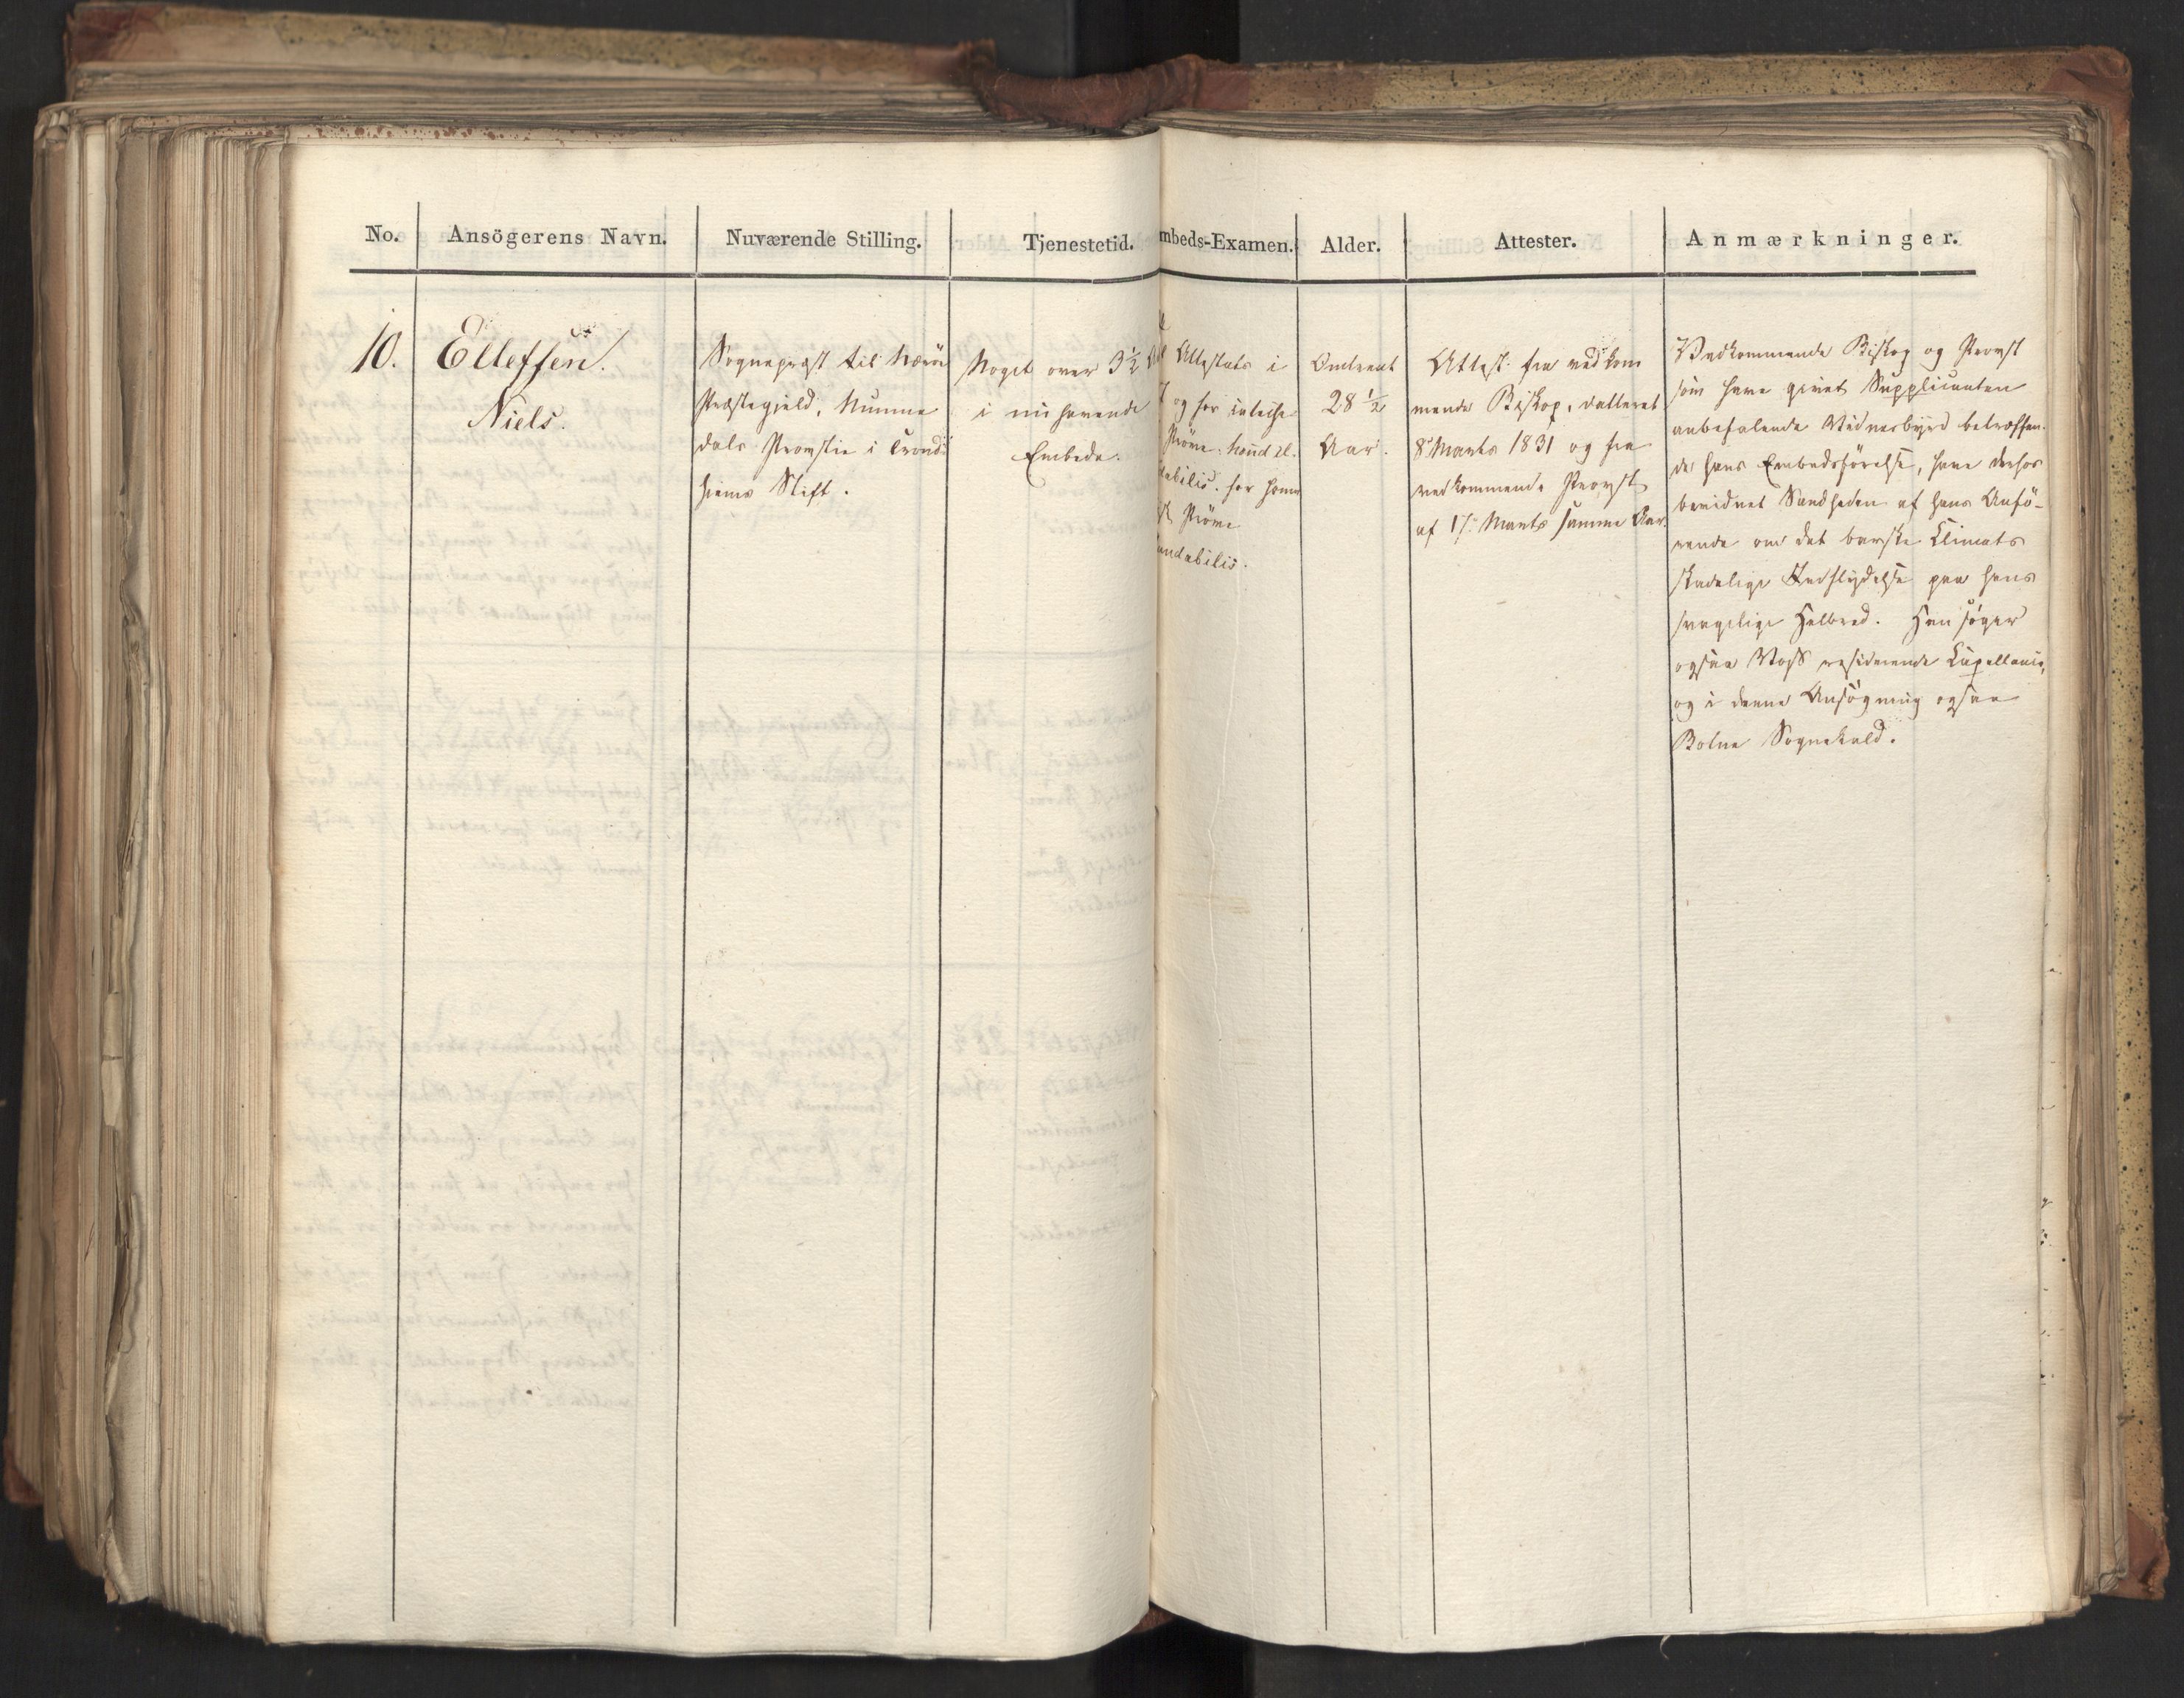 No.
Ansögerens Navn.
Nuværende Stilling.
Tjenestetid.
mbeds-Examen.
Alder.
Attester.
Anmærkninger.
10.
Elleffsen.
Niels.
Sognepræst til Nærö
Præstegjeld, Numme
dals Provstie i Trond
hjems Stift.
Noget over 3½
i nu havende
Embede.
Attestats i
og for
Pröve. haud il.
dabilis. for hom
Pröve
laudabilis.
Omtrent
28½
Aar.
Attest. fra vedkom
mende Biskop, datteret
8de Marts 1831 og fra
vedkommende Provst
af 17. Marts samme Aar.
Vedkommende Biskop og Provst
som have givet Supplicanten
anbefalende Vidnesbyrd betreffen-
de hans Embedsförelse, have derhos
bevidnet Sandheden af hans Anfö-
rende om det barske Climats
skadelige Indflydelse paa hans
svagelige Helbred. Han söger
ogsaa Voss residerende Capellanie,
og i denne Ansögning ogsaa
Bolsø Sognekald.